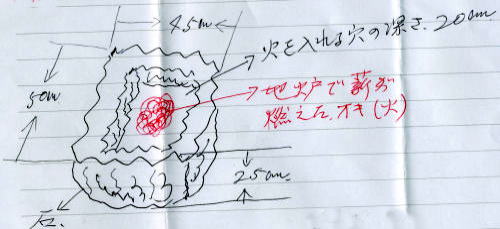 45cm
火を入れる穴の深さ. 20cm
50cm
地炉で薪が
燃えた. オキ(火)
25cm.
石.